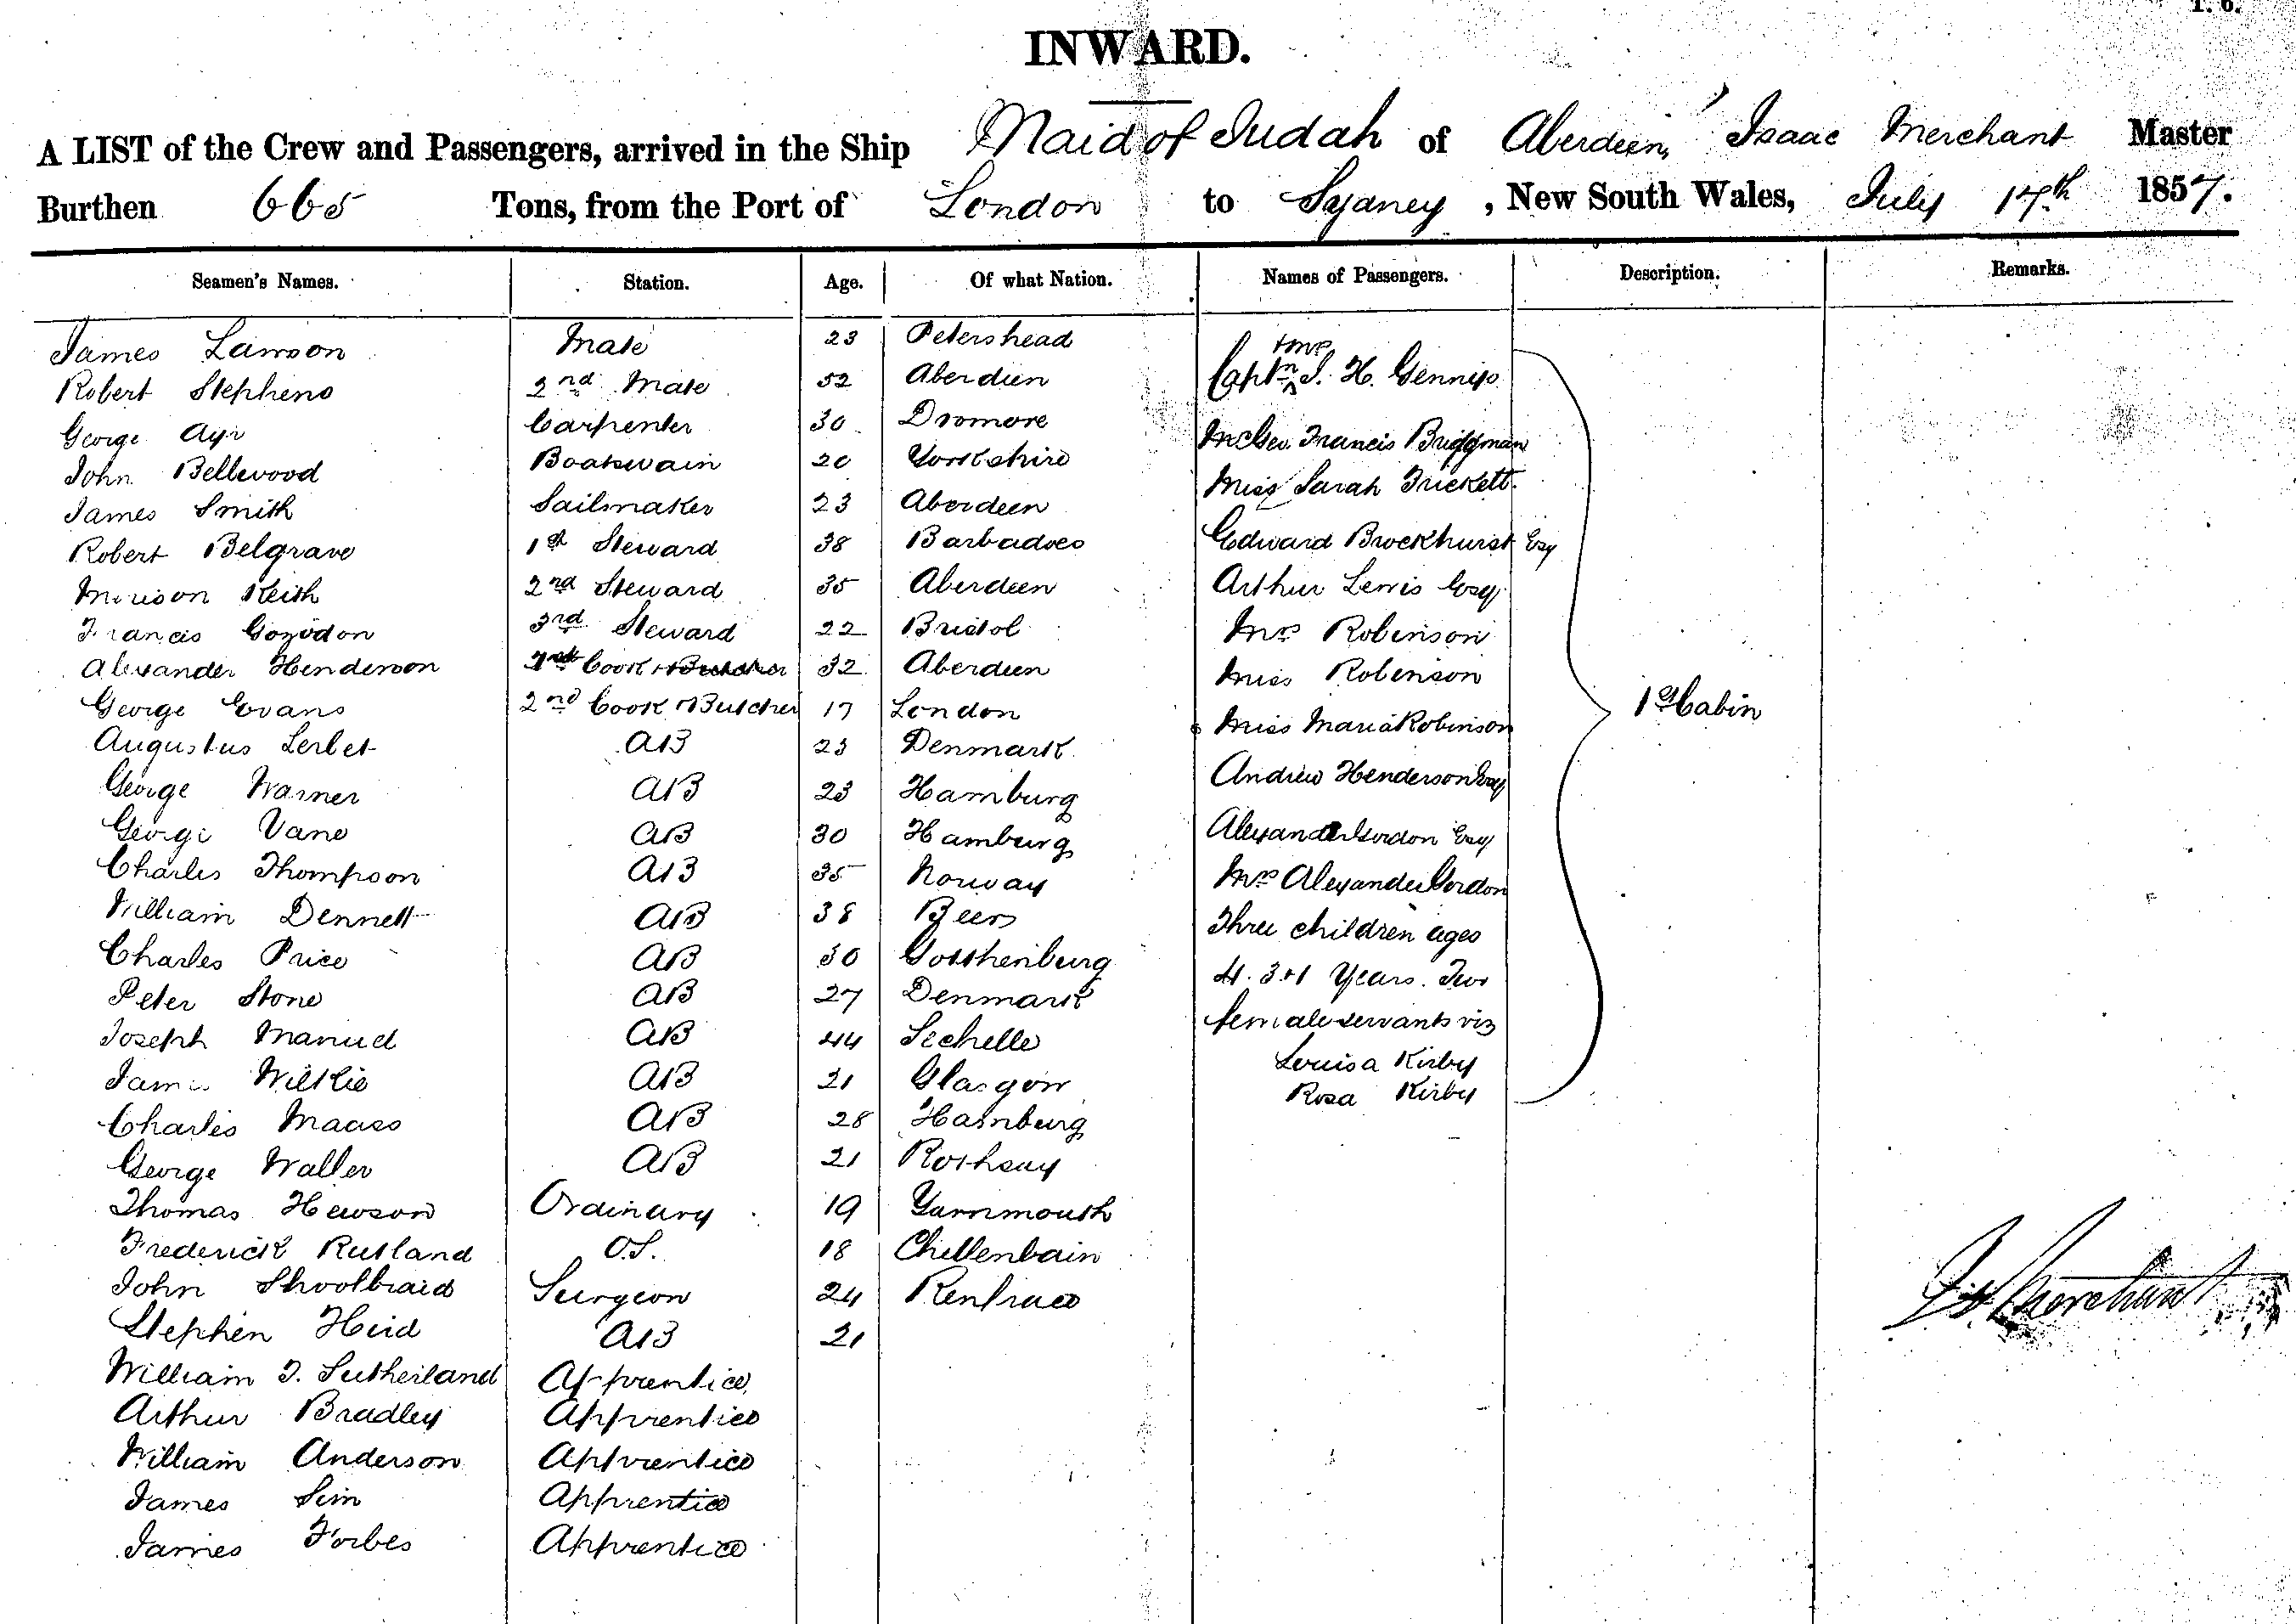 INWARD.
A LIST of the Crew and Passengers, arrived in the Ship Maid of Judah of Aberdeen, Isaac Merchant Master
Burthen 665 Tons, from the Port of London to Sydney, New South Wales, July 17th 1857.
Seamen's Names. Station. Age. Of what Nation. Names of Passengers. Description. Remarks.
James Lawson Mate 23 Petershead
Robert Stephens 2nd Mate 52 Aberdeen
George Ayr Carpenter 30 Dromore
John Bellewood Boatswain 20 Yorkshire
James Smith Sailmaker 23 Aberdeen
Robert Belgrave 1st Steward 38 Barbadoes
Morison Keith 2nd Steward 35 Aberdeen
Francis Gordon 3rd Steward 22 Bristol
Alexander Henderson 1st Cook + Butcher 32 Aberdeen
George Evans 2nd Cook + Butcher 17 London
Augustus Lerbet AB 23 Denmark
George Warner AB 23 Hamburg
George Vane AB 30 Hamburg
Charles Thompson AB 35 Norway
William Dennett AB 38 Beers
Charles Price AB 30 Gotthenburg
Peter Stone AB 27 Denmark
Joseph Manuel AB 44 Sechelle
James Wilkie AB 21 Glasgow
Charles Maass AB 28 Hamburg
George Waller AB 21 Rothsay
Thomas Hewson Ordinary 19 Yarnmouth
Frederick Rutland O.S. 18 Cheltenbain
John Shoolbraid Surgeon 24 Renfraew
Stephen Heid AB 21
William T. Sutherland Apprentice
Arthur Bradley Apprentice
William Anderson Apprentice
James Sim Apprentice
James Forbes Apprentice
+ Mrs
Captn S. H. Gennys
Geo. Francis Bridgman
Miss Sarah Trickett
Edward Brockhurst Esq
Arthur Lewis Esq
Mrs Robinson
Miss Robinson
Miss Maria Robinson
Andrew Henderson Esq
Alexander Gordon Esq
Mrs Alexander Gordon
Three children ages
4. 3 + 1 Years. Two
female servants viz
Louisa Kirby
Rosa Kirby
1st Cabin
Is. Merchant